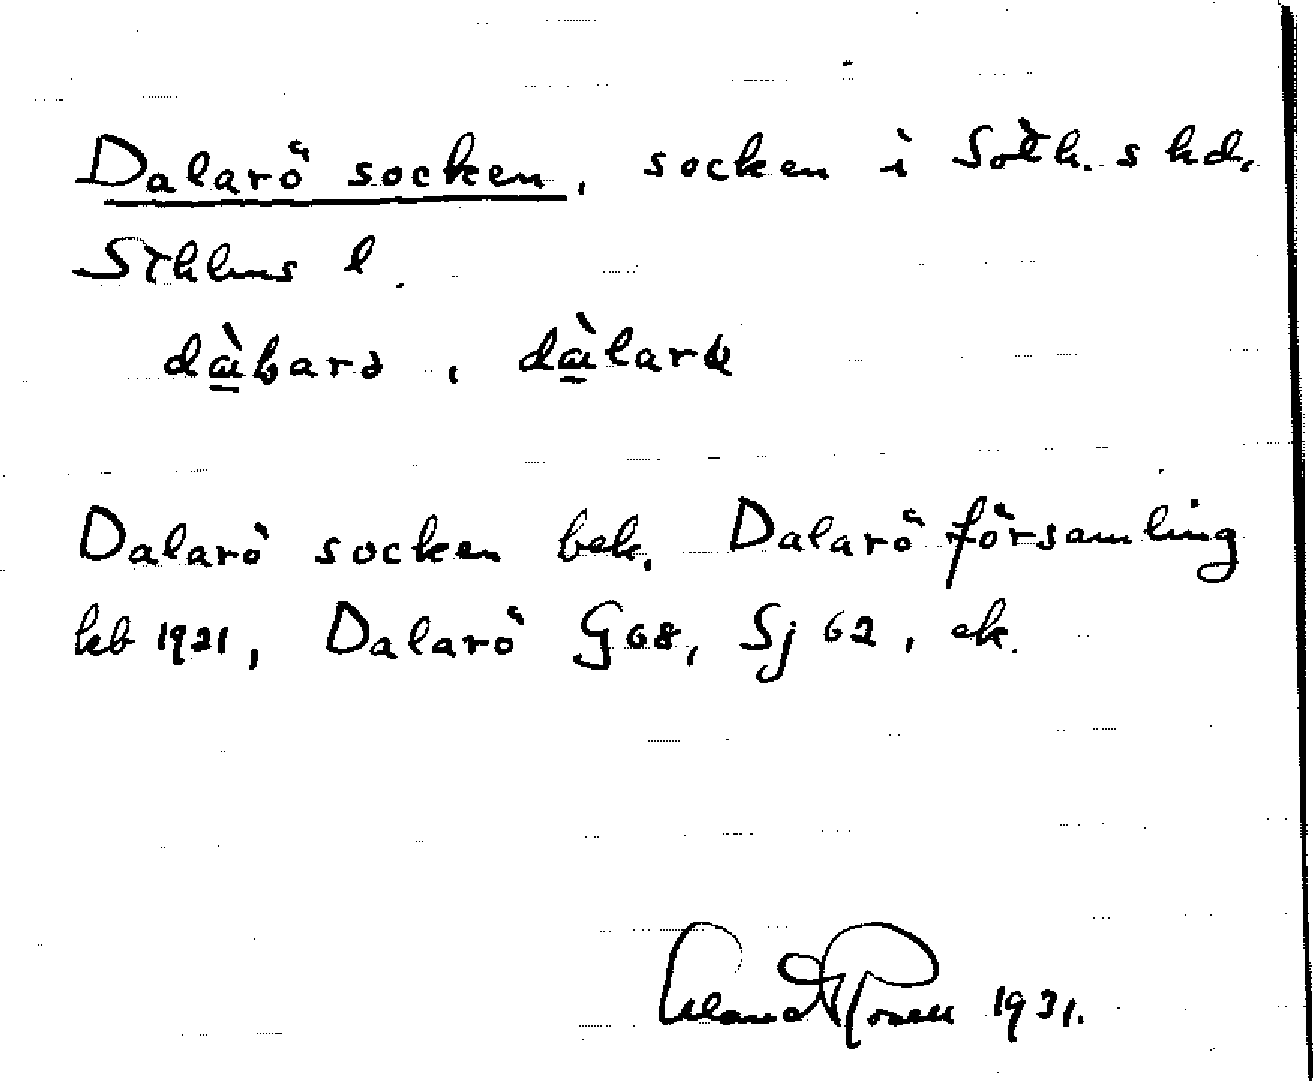 Dalarö socken, socken i Soth. s hd,
Sthlms l.
dàlarö, dàlarö
Dalarö socken bek. Dalarö församling
kb 1931, Dalarö G 68, Sj 62, ek.
Erland Rosell 1931.